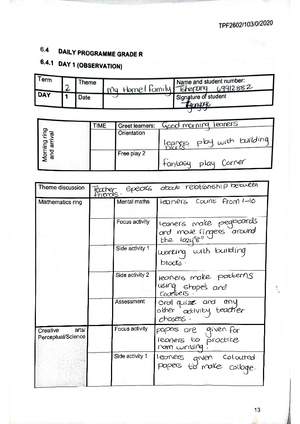 TPF2602/103/0/2020
6.4 DAILY PROGRAMME GRADE R
6.4.1 DAY 1 (OBSERVATION)
Term 2 Theme my Home/Family Name and student number:
69912882
DAY 1 Date Signature of student
Morning ring and arrival
TIME Greet learners: Good morning leaners
Orientation
leaners play with building
blocks
Free play 2
fantasy play Corner
Theme discussion Teacher speaks about relationship between
friends.
Mathematics ring Mental maths leaners count from 1-10
Focus activity leaners make pegboards
and move fingers around
the lazy "8"
Side activity 1 working with building
blocks.
Side activity 2 leaners make patterns
using shapes and
counters.
Assessment Oral quize and any
other activity teacher
choses.
Creative arts/ Perceptual/Science Focus activity papers are given for
leaners to practice
hand writing.
Side activity 1 leaners given coloured
papers to make collage.
13